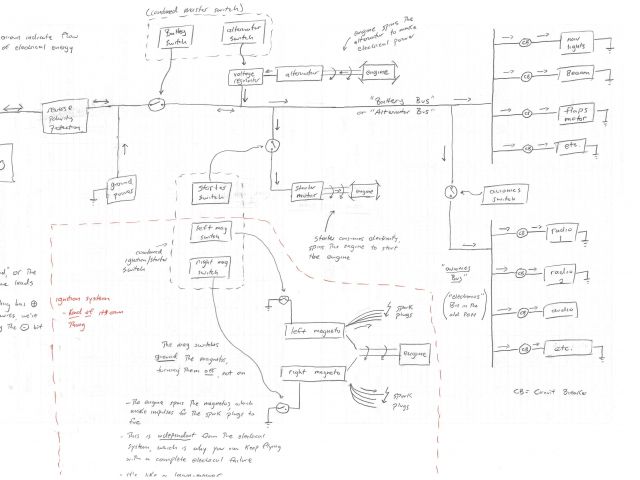 (combined master switch)
Battery switch
alternator switch
arrows indicate flow
of electrical energy
engine spins the
alternator to make
electrical power
voltage regulator
alternator
engine
reverse polarity protection
"Battery Bus"
or "Alternator Bus"
CB
nav lights
CB
Beacon
CB
flaps motor
CB
etc.
ground power
starter switch
left mag switch
right mag switch
combined
ignition/starter
switch
starter motor
engine
Starter consumes electricity,
spins the engine to start
the engine
avionics switch
"avionics
Bus"
("electronics"
Bus in the
old POH)
CB
radio 1
CB
radio 2
CB
audio
CB
etc.
CB = Circuit Breaker
ignition system
- kind of its own
thing
left magneto
spark
plugs
engine
right magneto
spark
plugs
The mag switches
ground the magnetos,
turning them off, not on
- The engine spins the magnetos which
make impulses for the spark plugs to
fire
- This is independent from the electrical
system, which is why you can keep flying
with a complete electrical failure